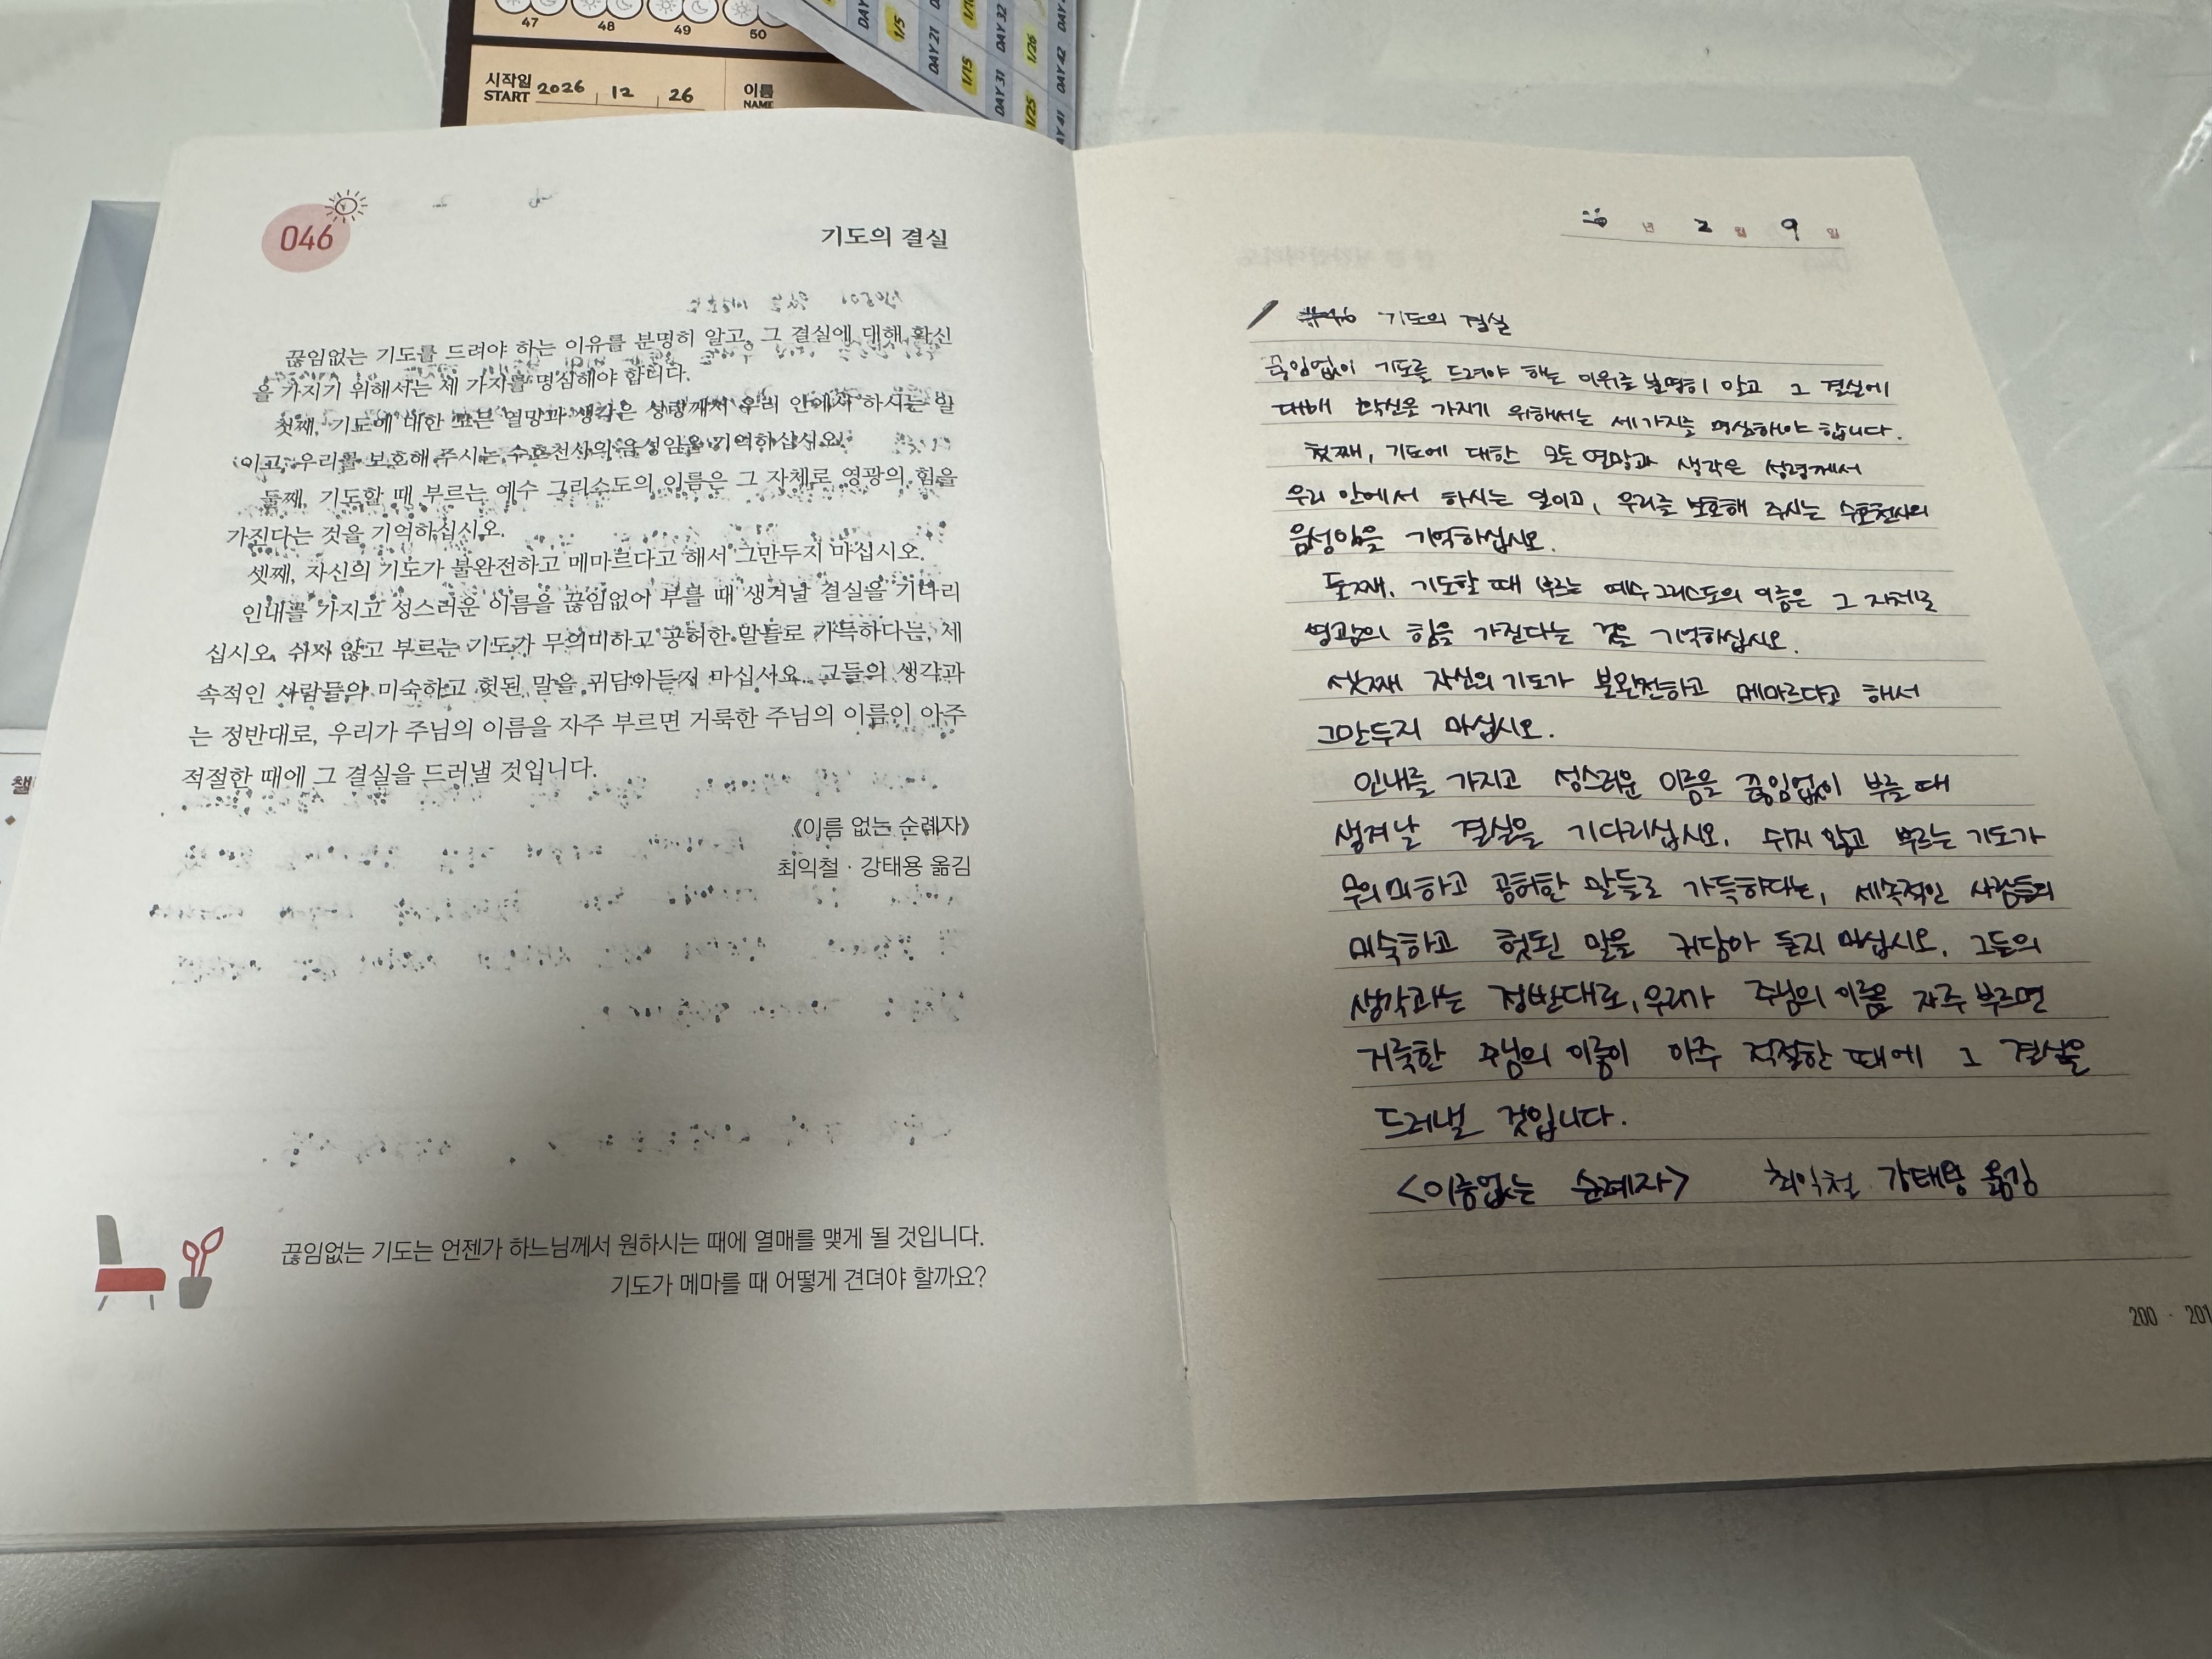 47 48 49 50
시작일
START 2026 12 26
이름
NAME
1/5
DAY 21
1/15
DAY 31
DAY 32
1/25
1/26
DAY 42
046
기도의 결실
끊임없는 기도를 드려야 하는 이유를 분명히 알고, 그 결실에 대해 확신
을 가지기 위해서는 세 가지를 명심해야 합니다.
첫째, 기도에 대한 모든 열망과 생각은 성령께서 우리 안에서 하시는 일
이고, 우리를 보호해 주시는 수호천사의 음성임을 기억하십시오.
둘째, 기도할 때 부르는 예수 그리스도의 이름은 그 자체로 영광의 힘을
가진다는 것을 기억하십시오.
셋째, 자신의 기도가 불완전하고 메마르다고 해서 그만두지 마십시오.
인내를 가지고 성스러운 이름을 끊임없이 부를 때 생겨날 결실을 기다리
십시오. 쉬지 않고 부르는 기도가 무의미하고 공허한 말들로 가득하다는, 세
속적인 사람들의 미숙하고 헛된 말을 귀담아듣지 마십시오. 그들의 생각과
는 정반대로, 우리가 주님의 이름을 자주 부르면 거룩한 주님의 이름이 아주
적절한 때에 그 결실을 드러낼 것입니다.
《이름 없는 순례자》
최익철 · 강태용 옮김
끊임없는 기도는 언젠가 하느님께서 원하시는 때에 열매를 맺게 될 것입니다.
기도가 메마를 때 어떻게 견뎌야 할까요?
년 2 월 9 일
기도의 결실
기도를 드려야 하는 이유를 분명히 알고 그 결실에
대해 확신을 가지기 위해서는 세가지를 명심하야 합니다.
첫째, 기도에 대한 모든 열망과 생각은 성령께서
우리 안에서 하시는 일이고, 우리를 보호해 주시는 수호천사의
음성임을 기억하십시오.
둘째, 기도할 때 부르는 예수그리스도의 이름은 그 자체로
영광의 힘을 가진다는 것을 기억하십시오.
셋째 자신의 기도가 불완전하고 메마르다고 해서
그만두지 마십시오.
인내를 가지고 성스러운 이름을 끊임없이 부를 때
생겨날 결실을 기다리십시오. 쉬지 않고 부르는 기도가
무의미하고 공허한 말들로 가득하다는, 세속적인 사람들의
미숙하고 헛된 말을 귀담아 듣지 마십시오. 그들의
생각과는 정반대로, 우리가 주님의 이름을 자주 부르면
거룩한 주님의 이름이 아주 적절한 때에 그 결실을
드러낼 것입니다.
<이름없는 순례자> 최익철 강태용 옮김
200 · 201